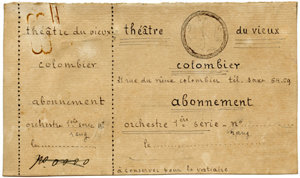 théâtre du vieux
colombier
abonnement
orchestre 1ère série n°
rang
le
N° 0000
théâtre du vieux
colombier
21 rue du vieux colombier tél. saxe 64.69
abonnement
orchestre 1ère série - n°
rang
le
à conserver pour le vestiaire